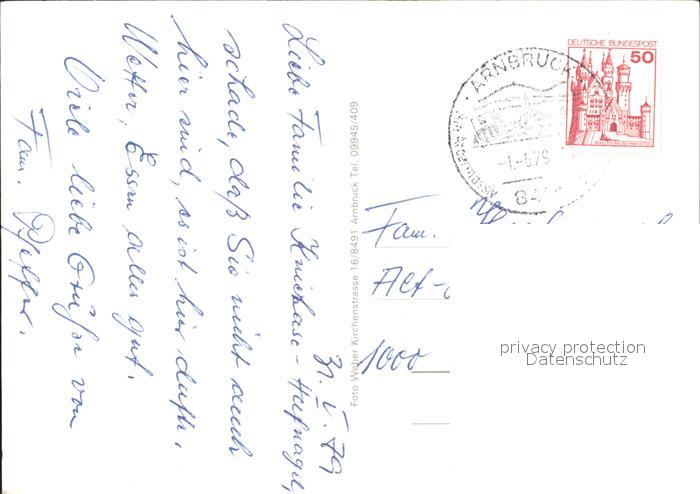 31. V. 79
Liebe Familie Kniehase-Hufnagel,
schade, daß Sie nicht auch
hier sind, es ist hier dufte.
Wetter, Essen alles gut.
Viele liebe Grüße von
Fam. Pfeffer.
Foto Weber Kirchenstrasse 16/8491 Arnbruck Tel. 09945/409
DEUTSCHE BUNDESPOST
50
ARNBRUCK
-1.-6.79
Fam.
Alt-
1000
privacy protection
Datenschutz